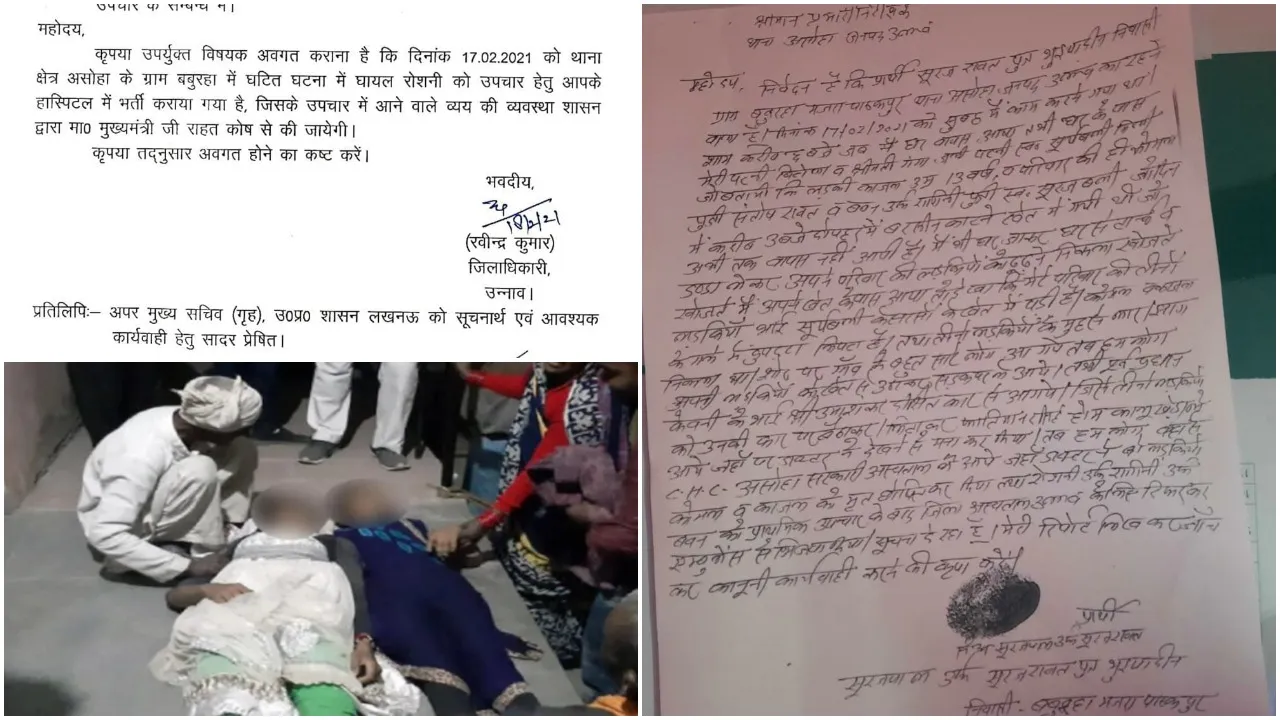 उपचार के सम्बन्ध में।
महोदय,
कृपया उपर्युक्त विषयक अवगत कराना है कि दिनांक 17.02.2021 को थाना
क्षेत्र असोहा के ग्राम बबुरहा में घटित घटना में घायल रोशनी को उपचार हेतु आपके
हास्पिटल में भर्ती कराया गया है, जिसके उपचार में आने वाले व्यय की व्यवस्था शासन
द्वारा मा0 मुख्यमंत्री जी राहत कोष से की जायेगी।
कृपया तद्नुसार अवगत होने का कष्ट करें।
भवदीय,
18/2/21
(रवीन्द्र कुमार)
जिलाधिकारी,
उन्नाव।
प्रतिलिपिः– अपर मुख्य सचिव (गृह), उ0प्र0 शासन लखनऊ को सूचनार्थ एवं आवश्यक
कार्यवाही हेतु सादर प्रेषित।
थाना असोहा जनपद उन्नाव
महोदय, निवेदन है कि प्रार्थी सूरज रावत पुत्र निवासी
ग्राम बबुरहा मजरा पाठकपुर थाना असोहा जनपद उन्नाव का रहने
वाला है। दिनांक 17/02/2021 को सुबह मैं काम करने गया था।
शाम करीब बजे जब मैं घर वापस आया तभी घर के पास
मेरी पत्नी व श्रीमती पत्नी स्व. सूर्यबली मिली
कि लड़की काजल उम्र 13 वर्ष, व परिवार की ही कोमल
पुत्री संतोष रावत व उर्फ रागिनी पुत्री स्व. सूरज बली जो दिन
में करीब 3 बजे दोपहर में बरसीन काटने खेत में गयी थी जो
अभी तक वापस नहीं आयी है। मैं भी घर जाकर घर से टार्च व
डण्डा लेकर अपने परिवार की लड़कियों को ढूढ़ने निकला खोजते
खोजते मैं अपने खेत के पास आया तो देखा कि मेरे परिवार की तीनों
लड़कियाँ भाई सूर्यबली के खेत में पड़ी है। कोमल व काजल
के गले में दुपट्टा लिपटा है। तथा तीनों लड़कियों के मुह से झाग
निकला था। शोर पर गाँव के बहुत सारे लोग आ गये तब हम लोग
अपनी लड़कियों को खेत से उठाकर सड़क पर ले आये। तभी पूर्व प्रधान
के भाई श्री उमाशंकर दीक्षित कार से आ गये। जिसे तीनों लड़कियों
को उनकी कार पर बैठाकर
आये जहाँ पर डाक्टर ने देखने से मना कर दिया। तब हम लोग वहाँ से
C.H.C. असोहा सरकारी अस्पताल ले आये जहाँ डाक्टर ने दो लड़कियों
कोमल व काजल को मृत घोषित कर दिया तथा रोशनी उर्फ रागिनी उर्फ
को प्राथमिक उपचार के बाद जिला अस्पताल उन्नाव के लिए रिफर कर
एम्बुलेंस से भिजवा दिया। सूचना दे रहा हूँ। मेरी रिपोर्ट लिख कर जाँच
कर कानूनी कार्यवाही करने की कृपा करें।
प्रार्थी
सूरजपाल उर्फ सूरज रावत
सूरजपाल उर्फ सूरज रावत पुत्र
निवासी - बबुरहा मजरा पाठकपुर